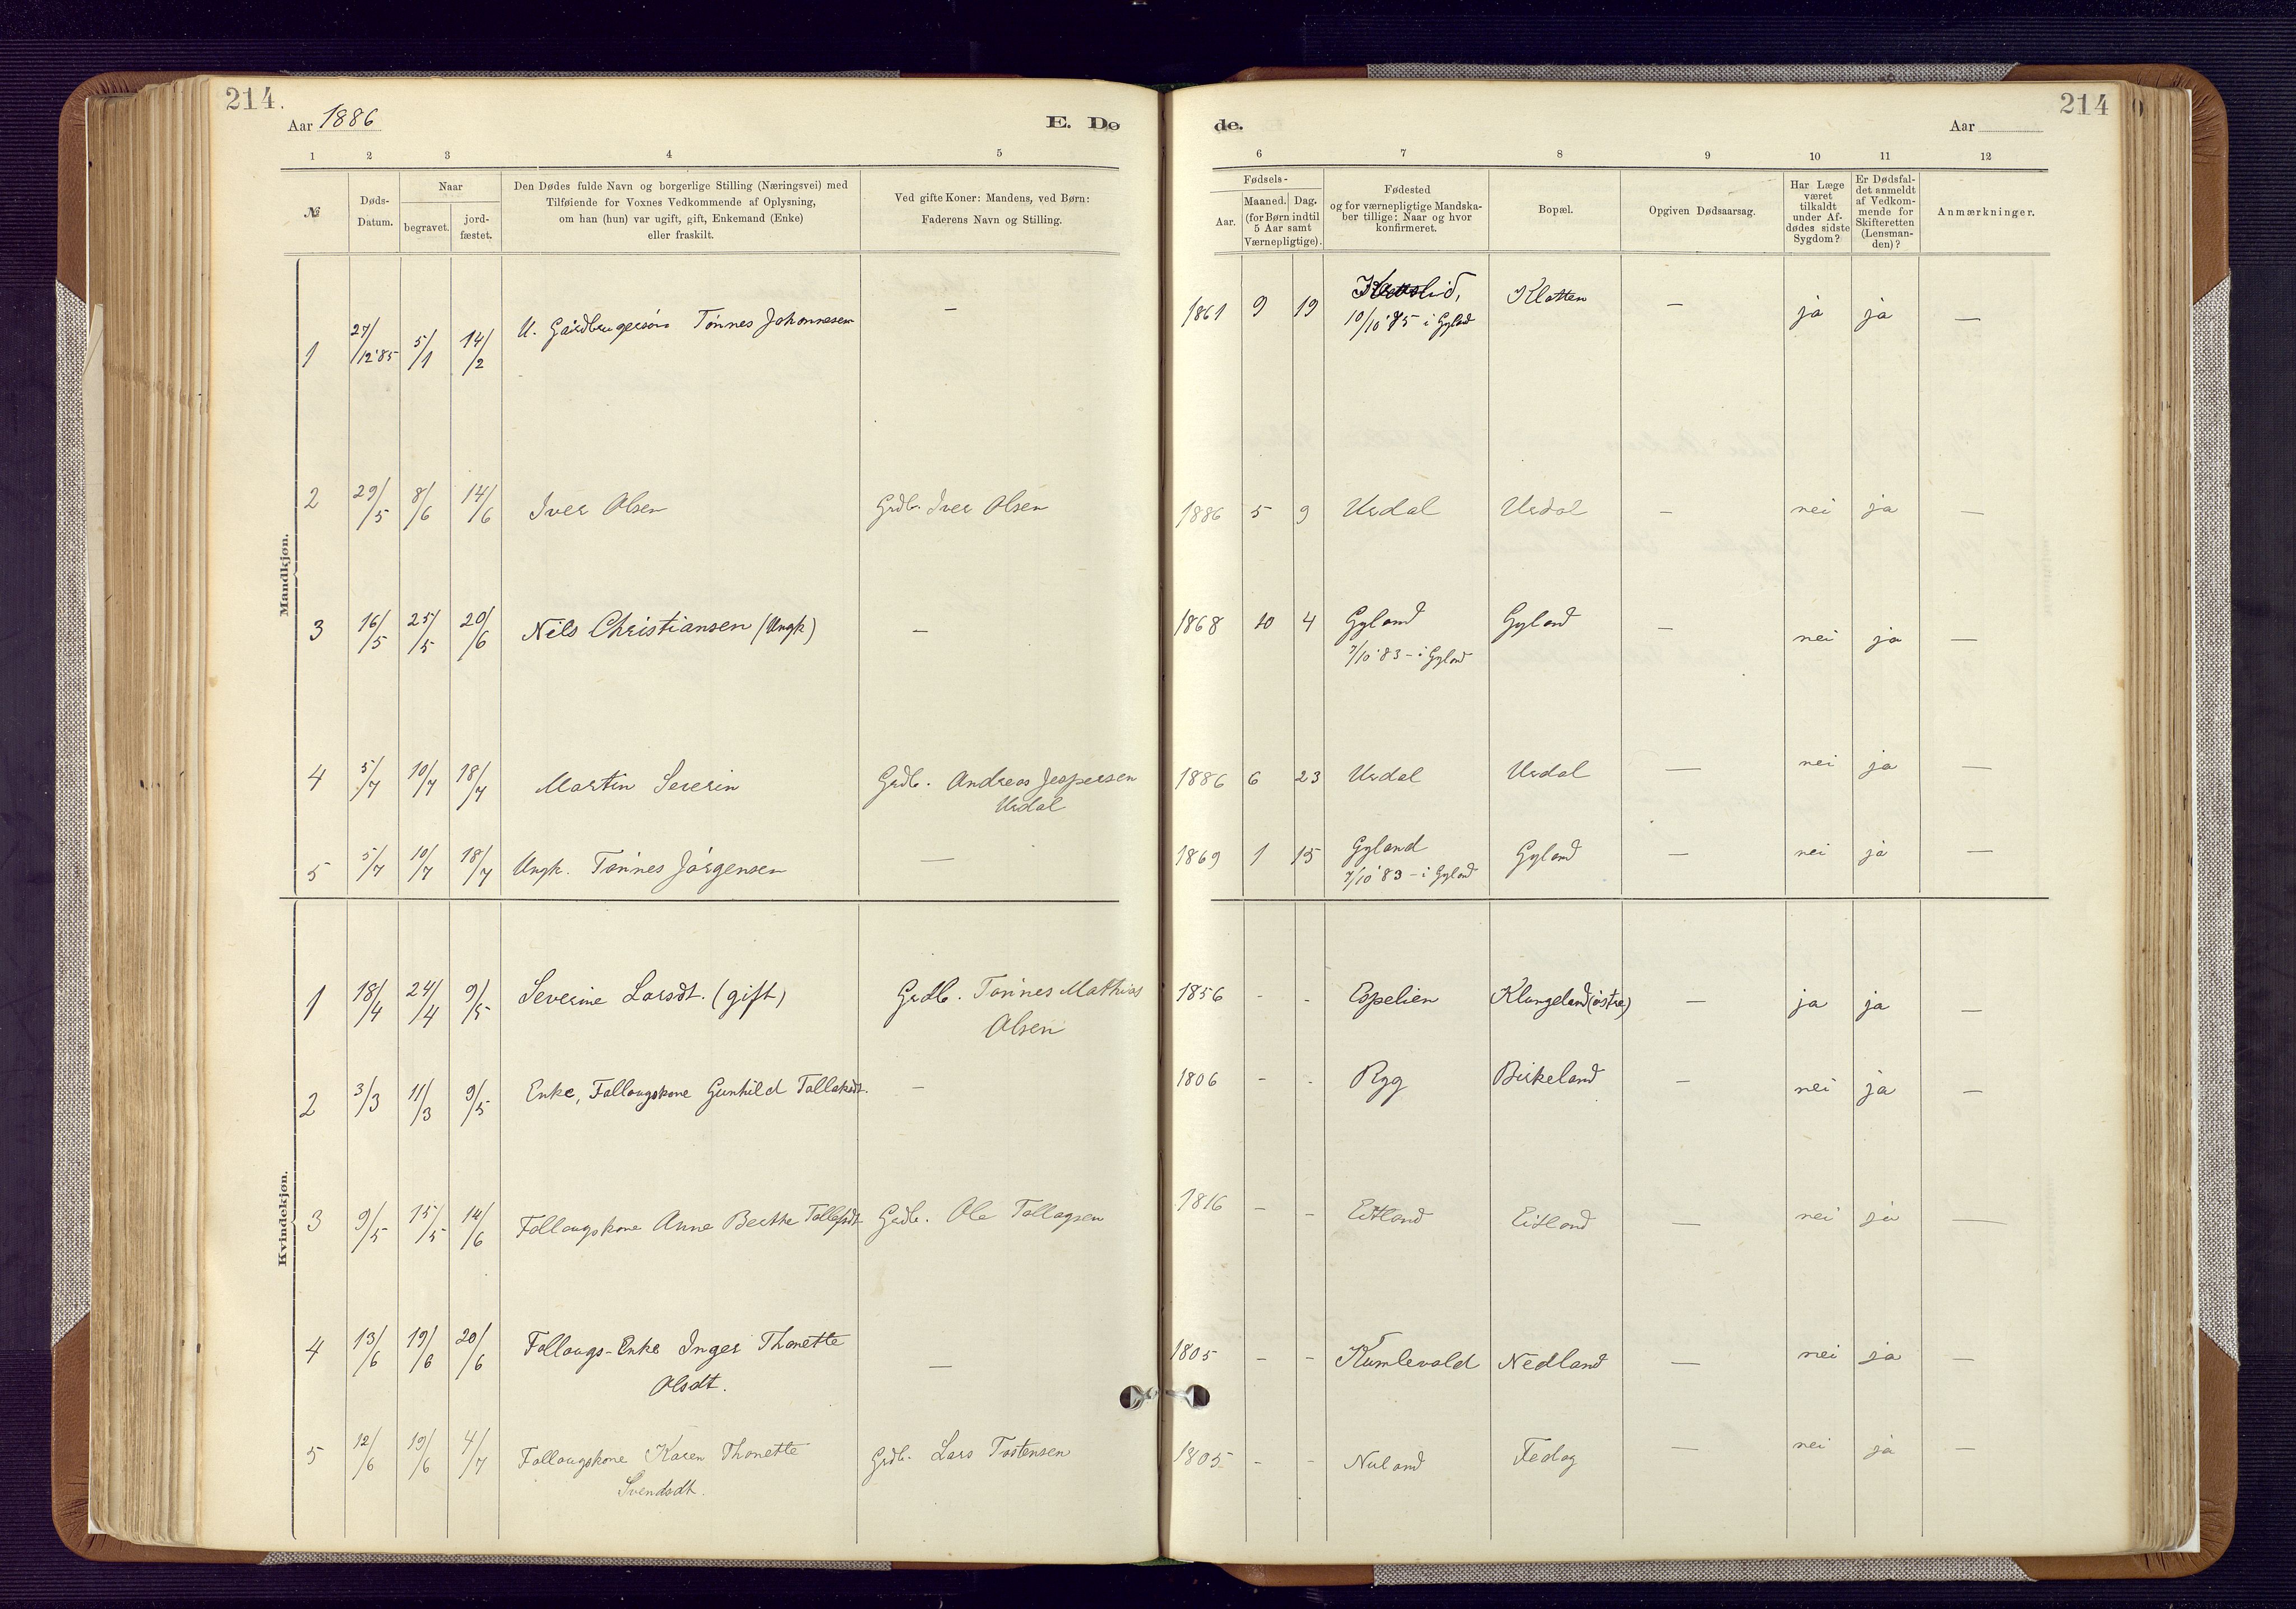 214.
214
Aar 1886
E. Dø
de.
Aar
1 2 3 4 5
6 7 8 9 10 11 12
№
Døds-
Datum.
Naar
begravet.
jord-
fæstet.
Den Dødes fulde Navn og borgerlige Stilling (Næringsvei) med
Tilføiende for Voxnes Vedkommende af Oplysning,
om han (hun) var ugift, gift, Enkemand (Enke)
eller fraskilt.
Ved gifte Koner: Mandens, ved Børn:
Faderens Navn og Stilling.
Fødsels-
Aar.
Maaned. Dag.
(for Børn indtil
5 Aar samt
Værnepligtige).
Fødested
og for værnepligtige Mandska-
ber tillige: Naar og hvor
konfirmeret.
Bopæl.
Opgiven Dødsaarsag.
Har Læge
været
tilkaldt
under Af-
dødes sidste
Sygdom?
Er Dødsfal-
det anmeldt
af Vedkom-
mende for
Skifteretten
(Lensman-
den)?
Anmærkninger.
Mandkjøn.
1 27/12'85 5/1 14/2 U. Gårdbrugersøn Tønnes Johannesen — 1861 9 19 Klatten — ja ja —
i Gyland
2 29/5 8/6 14/6 Iver Olsen Grdb. Iver Olsen 1886 5 9 Urdal Urdal — nei ja —
3 16/5 25/5 20/6 Nils Christiansen (Ungk) — 1868 10 4 Gyland Gyland — nei ja —
7/10'83 – i Gyland
4 5/7 10/7 18/7 Martin Severin Grdb. Andreas Jespersen 1886 6 23 Urdal Urdal — nei ja —
Urdal
5 5/7 10/7 18/7 Ungk. Tønnes Jørgensen — 1869 1 15 Gyland Gyland — nei ja —
7/10'83 – i Gyland
Kvindekjøn.
1 18/4 24/4 9/5 Severine Larsdt. (gift) Grdb. Tønnes Mathias 1856 - - Espelien Klungeland (østre) — ja ja —
Olsen
2 3/3 11/3 9/5 Enke, Follougskone Gunhild Tallaksdt. — 1806 - - Rygg Birkeland — nei ja —
3 9/5 15/5 14/6 Follougskone Anne Berthe Grdb. Ole 1816 - - Eitland Eitland — nei ja —
4 13/6 19/6 20/6 Follougs-Enke Inger Thonette — 1805 - - Kumlevold Nedland — nei ja —
Olsdt.
5 12/6 19/6 4/7 Follougskone Karen Thonette Grdb. Lars Tostensen 1805 - - Nuland Fedog — nei ja —
Svendsdt.